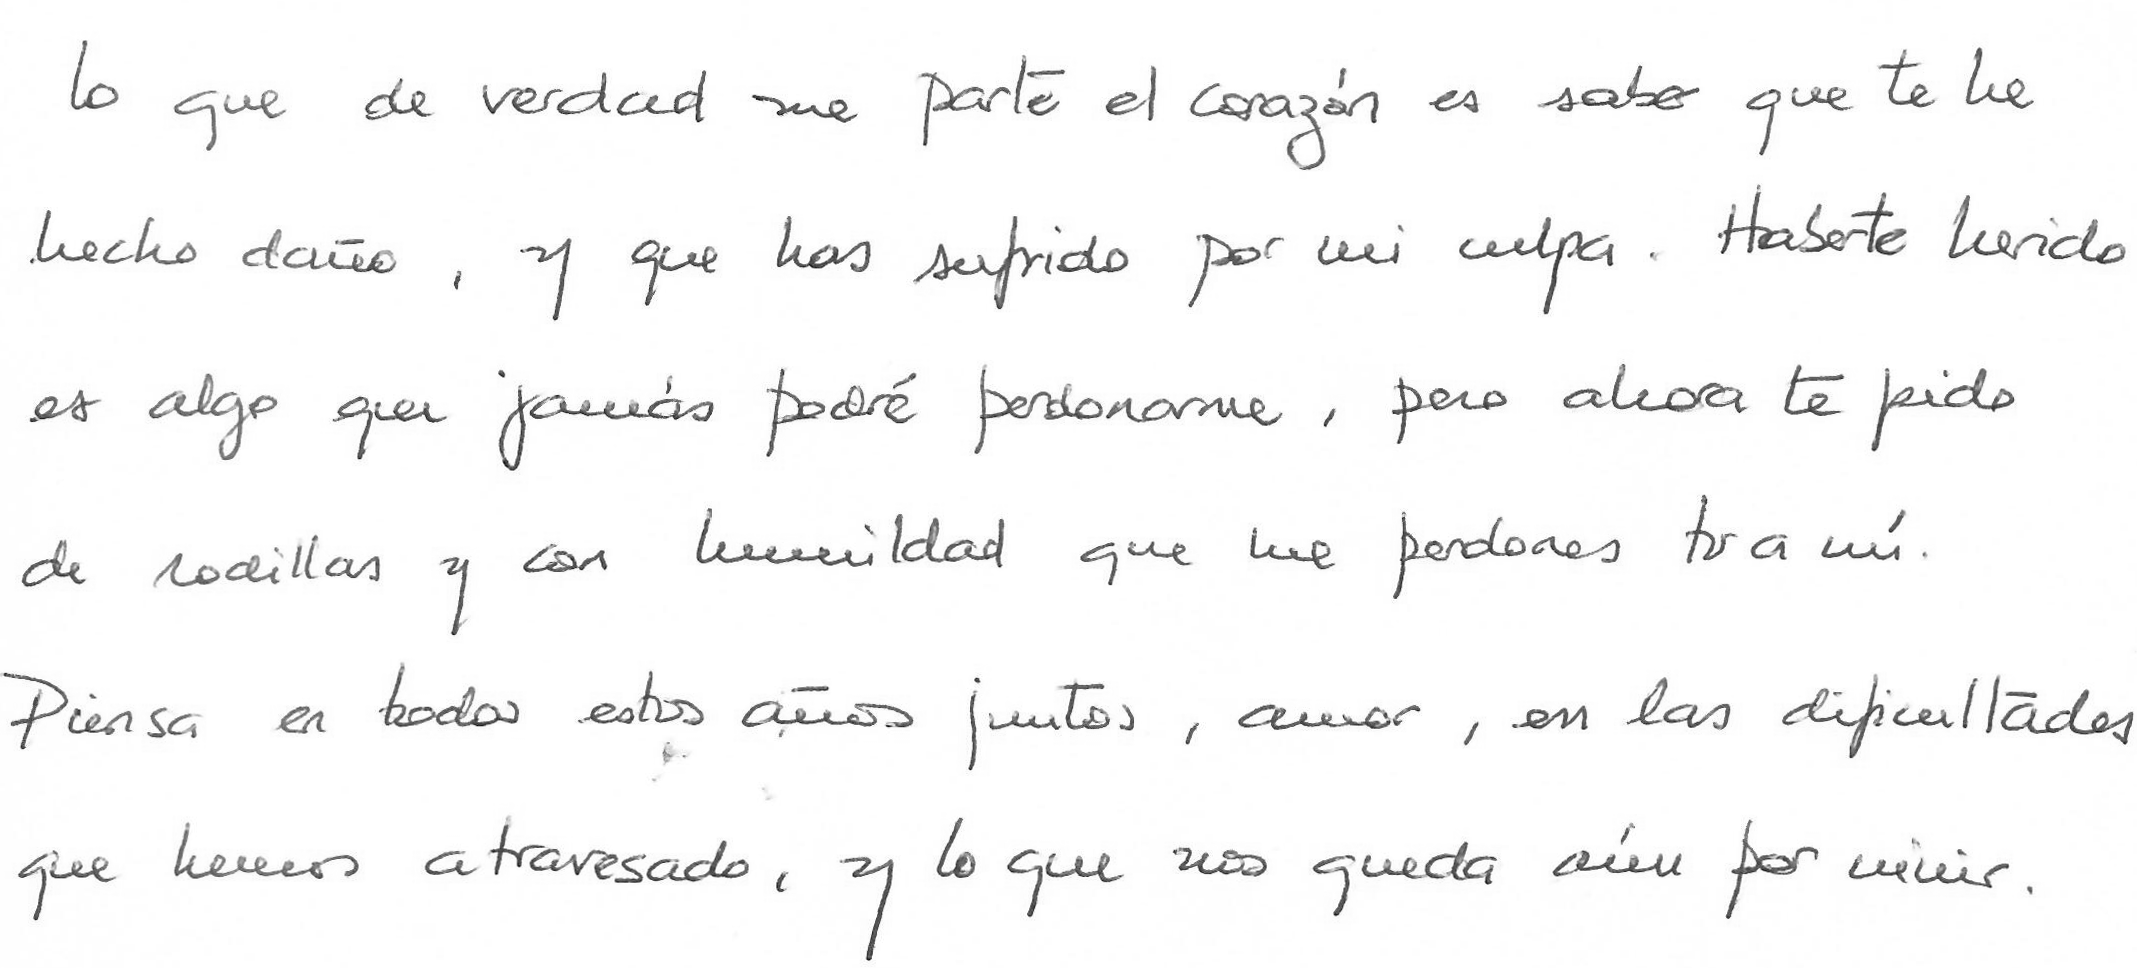 lo que de verdad me parte el corazón es saber que te he
hecho daño, y que has sufrido por mi culpa. Haberte herido
es algo que jamás podré perdonarme, pero ahora te pido
de rodillas y con humildad que me perdones tu a mí.
Piensa en todos estos años juntos, amor, en las dificultades
que hemos atravesado, y lo que nos queda aún por vivir.